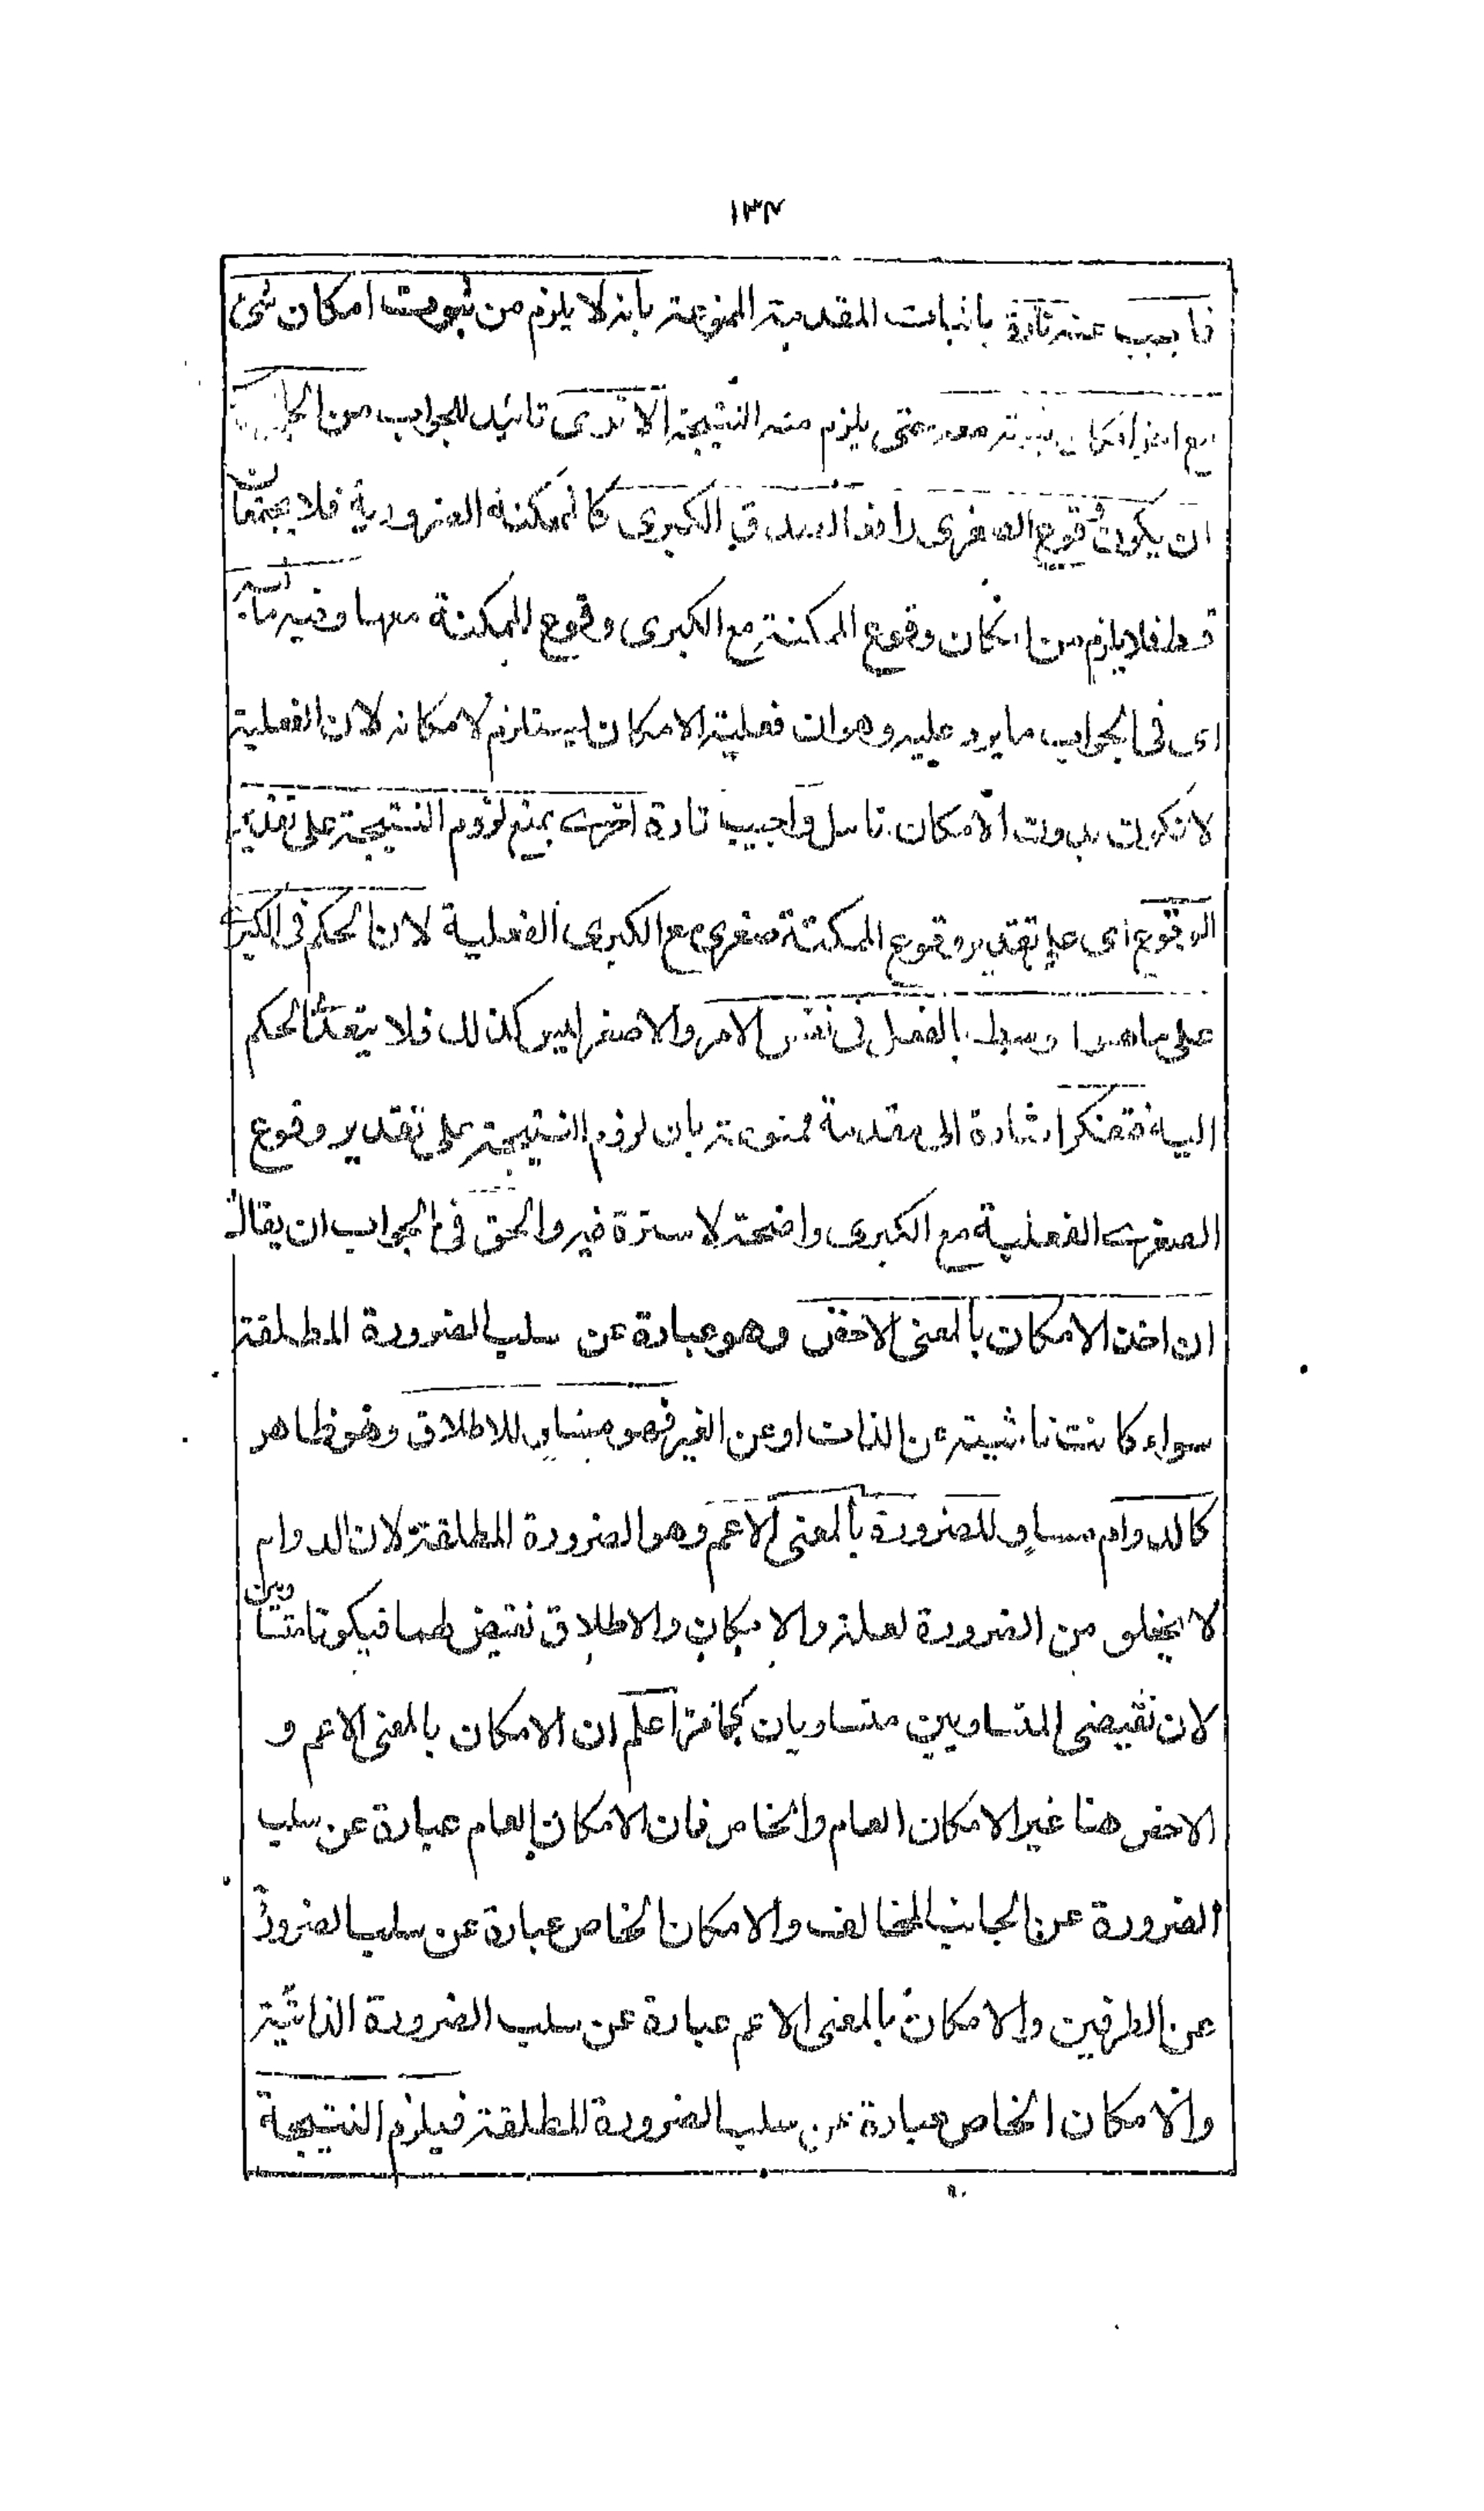 ١٣٤
فاجيب عنه تارة باثبات المقدمة الممنوعة بانه لا يلزم من ثبوت امكان شئ
مع اخر امكان ثبوته معه حتى يلزم منه النتيجة الا ترى تائيد للجواب من الجائز
ان يكون وقوع الصغرى رافعا لصدق الكبرى كالممكنة الضرورية فلا يجتمعان
قط فلا يلزم من امكان وقوع الممكنة مع الكبرى وقوع الممكنة معها وفيه ما فيه
اى فى الجواب ما يرد عليه وهو ان فعلية الامكان ليستلزم لامكانه لان الفعلية
لا تكون بدون الامكان تامل واجيب تارة اخرى بمنع لزوم النتيجة على تقدير
الوقوع اى على تقدير وقوع الممكنة صغرى مع الكبرى الفعلية لان الحكم فى الكبرى
على ما هو اوسط بالفعل فى نفس الامر والاصغر ليس كذلك فلا يتعدى الحكم
اليه فتفكر اشارة الى مقدمة ممنوعة بان لزوم النتيجة على تقدير وقوع
الصغرى الفعلية مع الكبرى واضحة لا سترة فيه والحق فى الجواب ان يقال
ان اخذ الامكان بالمعنى الاخص وهو عبارة عن سلب الضرورة المطلقة
سواء كانت ناشية عن الذات او عن الغير فهو مساوٍ للاطلاق وهو ظاهر
كالدوام مساوٍ للضرورة بالمعنى الاعم وهو الضرورة المطلقة لان الدوام
لا يخلو من الضرورة لعلة والامكان والاطلاق نقيض لهما فيكونا متساويين
لان نقيضى المتساويين متساويان كما مرّ اعلم ان الامكان بالمعنى الاعم و
الاخص هنا غير الامكان العام والخاص فان الامكان العام عبارة عن سلب
الضرورة عن الجانب المخالف والامكان الخاص عبارة عن سلب الضرورة
عن الطرفين والامكان بالمعنى الاعم عبارة عن سلب الضرورة الذاتية
والامكان الخاص عبارة عن سلب الضرورة المطلقة فيلزم النتيجة